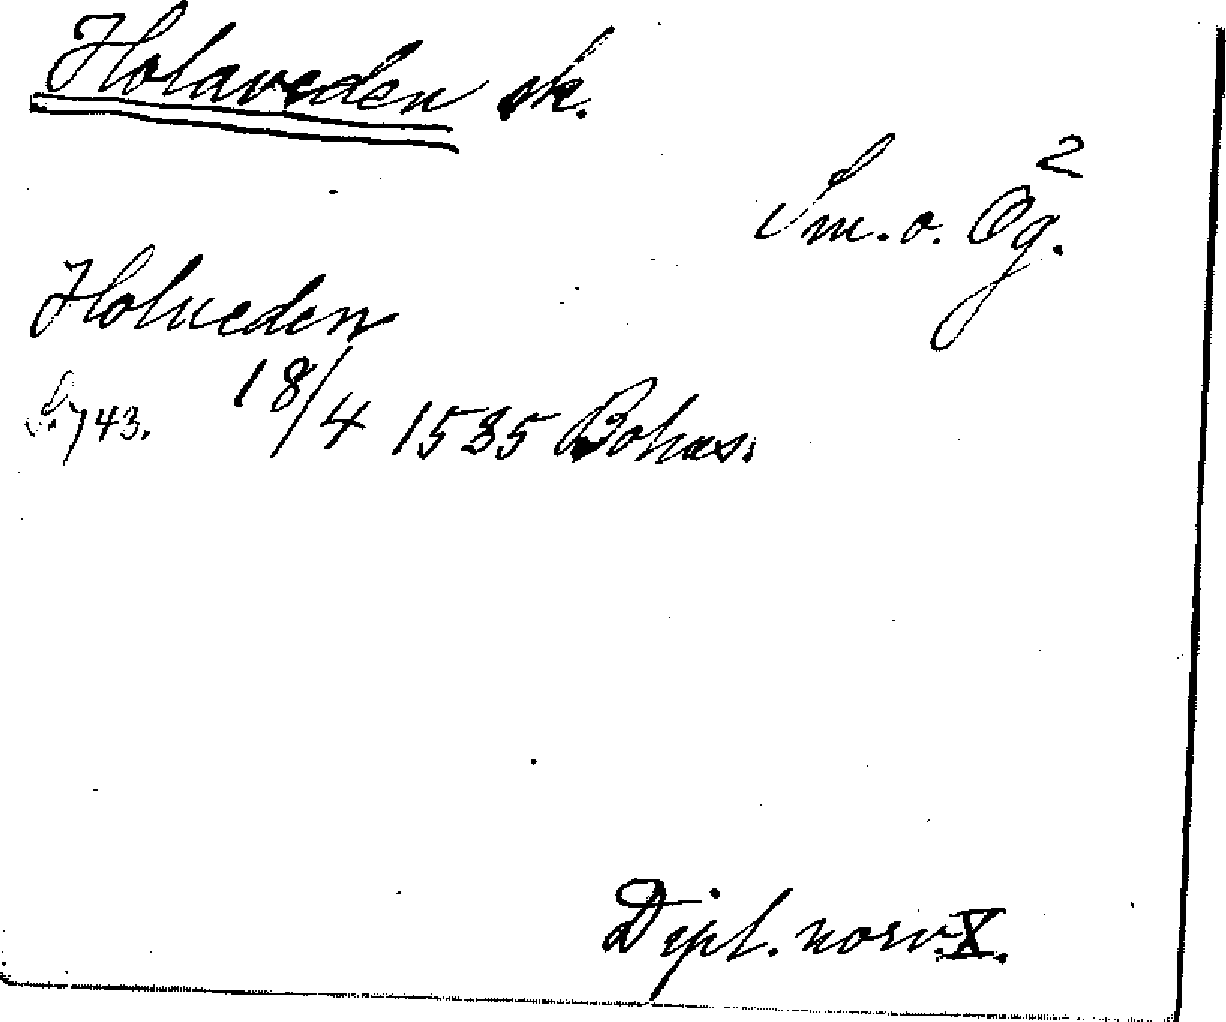 Holaveden sk.
2
Sm. o. Ög.
Holueden
S. 743. 18/4 1535 Bohus.
Dipl. norv. X.